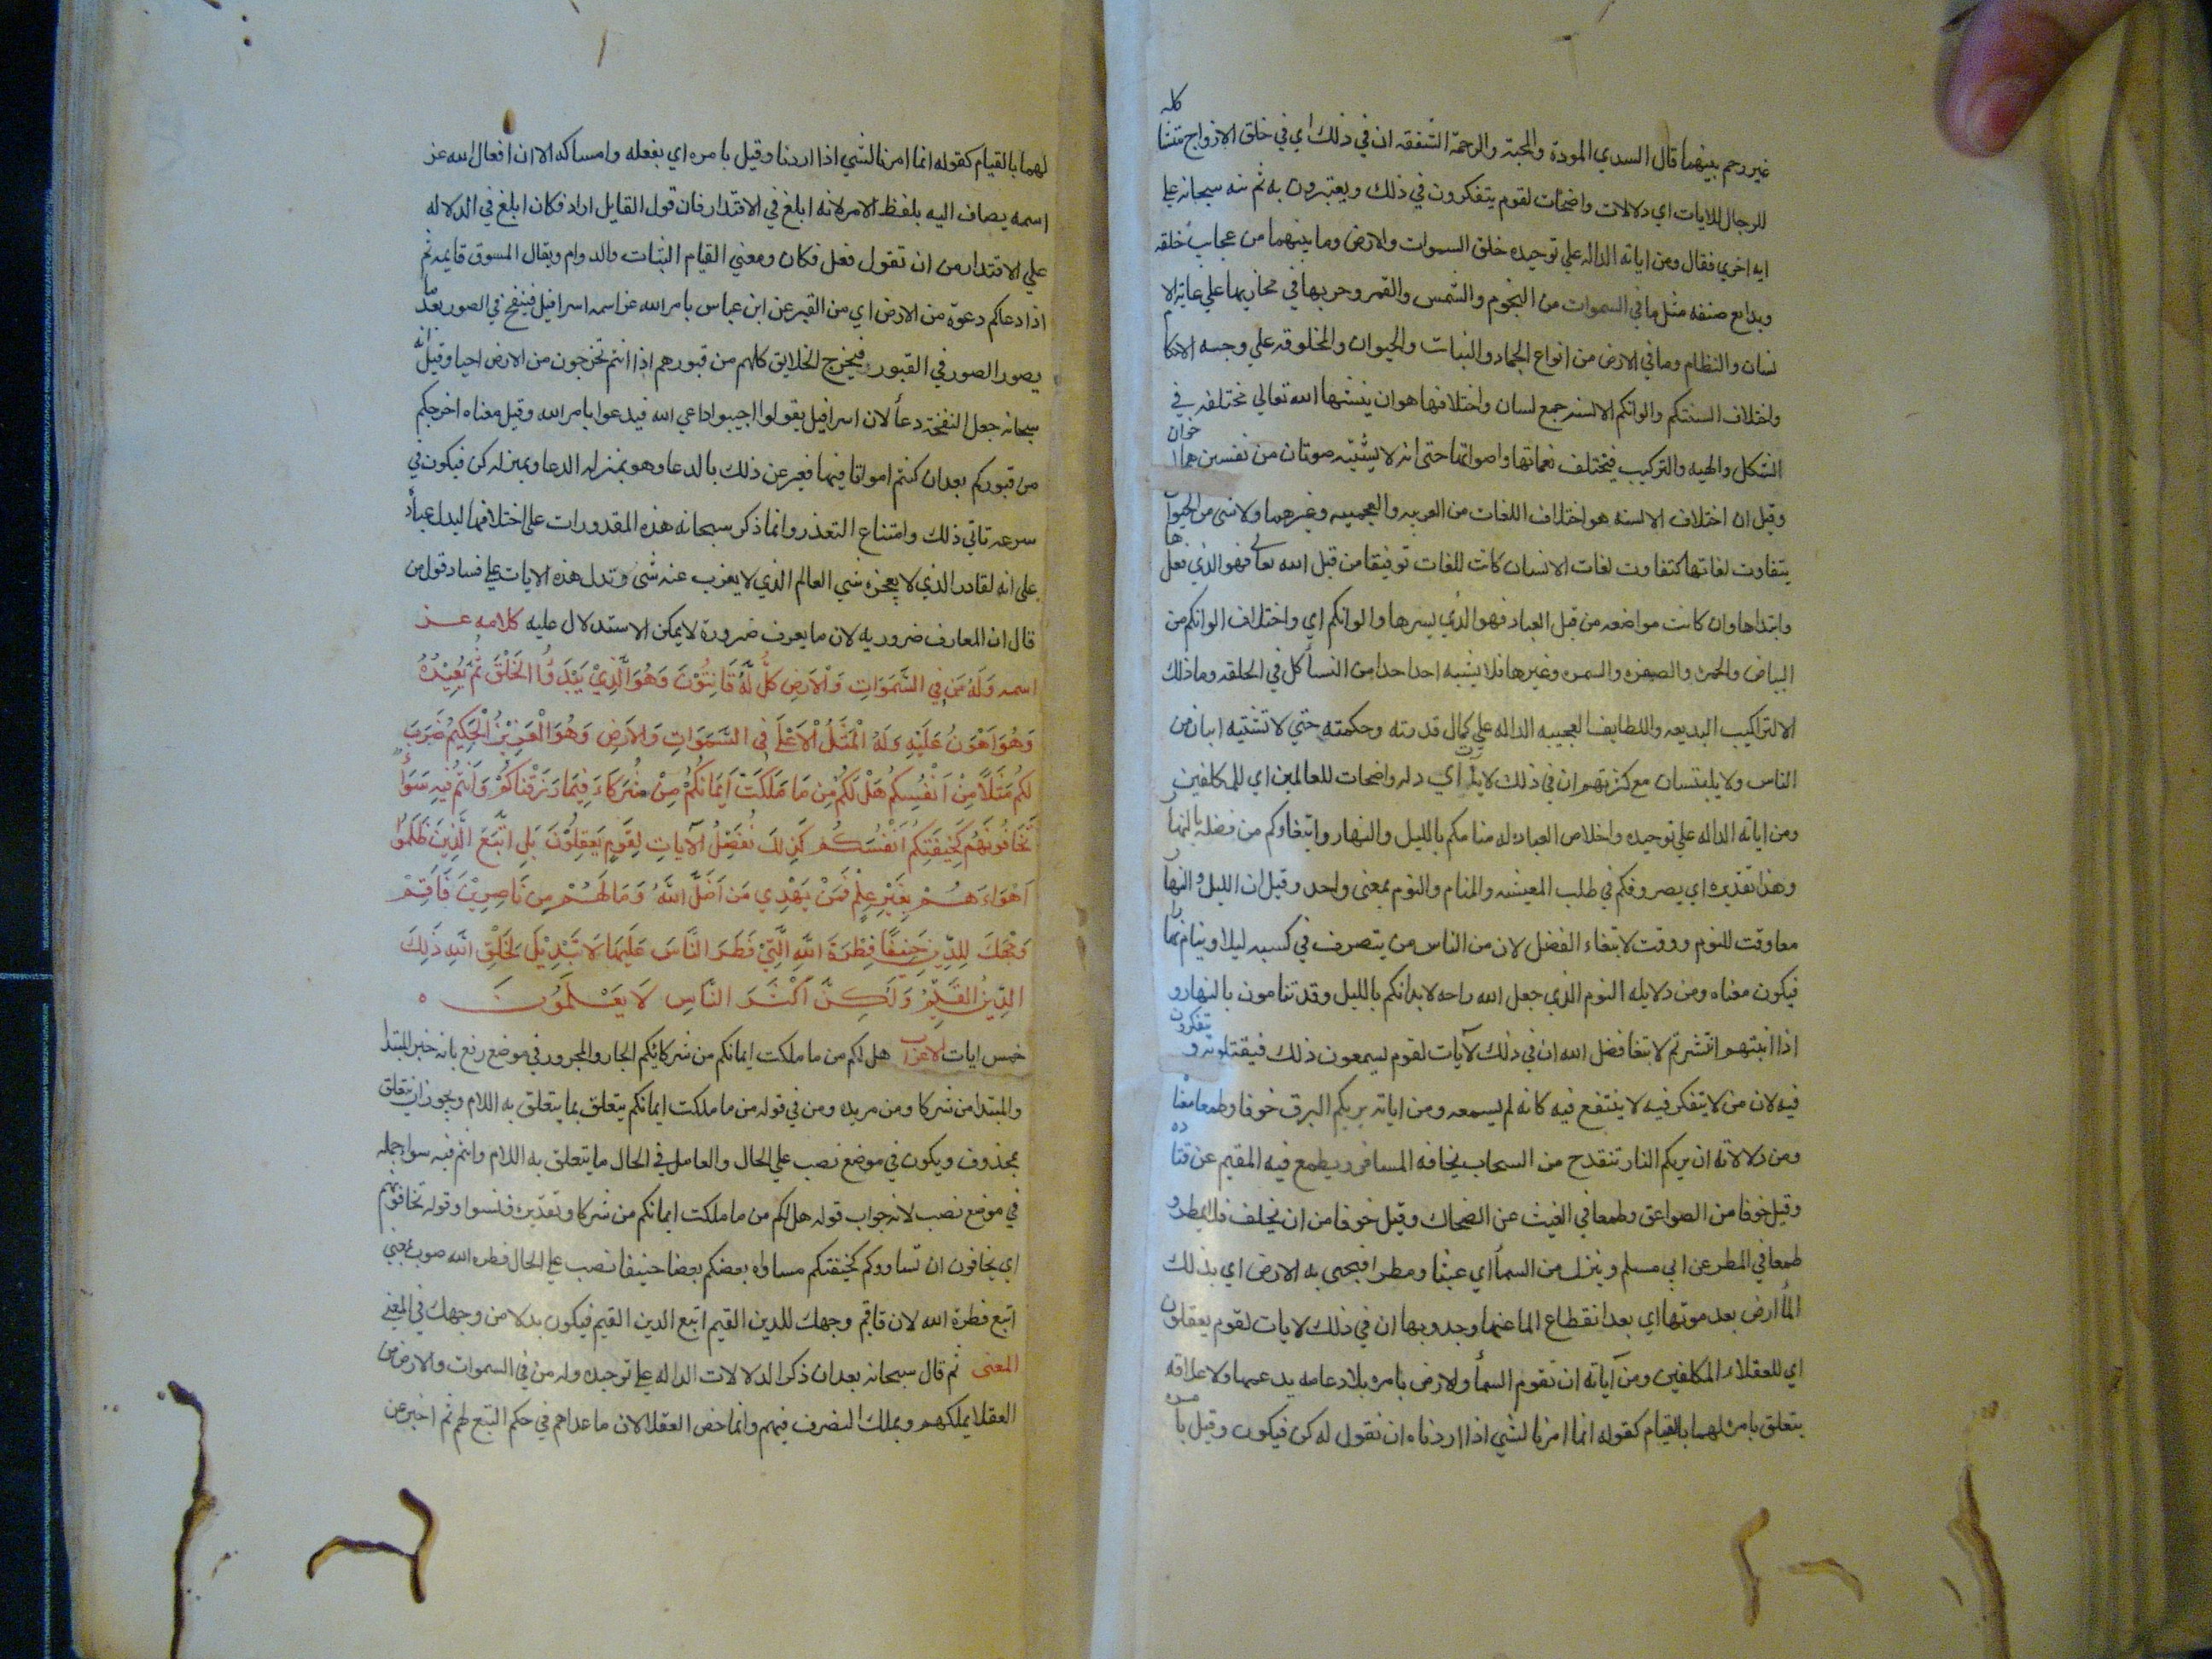 غير رحم بينهما قال السدي المودة والمحبة والرحمة الشفقه ان في ذلك اي في خلق الازواج متشا كله
للرجال للايات اي دلالات واضحات لقوم يتفكرون في ذلك ويعتبرون به ثم نبه سبحانه علي
ايه اخري فقال ومن اياته الداله علي توحيده خلق السموات والارض وما بينهما من عجايب خلقه
وبدايع صنفه مثل ما في السموات من النجوم والشمس والقمر وجريها في مجاريها علي غاية الا
نسان والنظام وما في الارض من انواع الجماد والنبات والحيوان والمخلوقه علي وجه الاحكا
واختلاف السنتكم والوانكم الالسنه جمع لسان واختلافها هو ان ينشيها الله تعالي مختلفه في
الشكل والهيه والتركيب فتختلف نغماتها واصواتها حتى انه لا يشتبه صوتان من نفسين هما ا خوان
وقيل ان اختلاف الالسنه هو اختلاف اللغات من العربيه والعجميه وغيرهما ولا شي من الحيوان
يتفاوت لغاتها كتفاوت لغات الانسان كانت اللغات توفيقا من قبل الله تعالى فهو الذي فعل ها
وابتداها وان كانت مواضعه من قبل العباد فهو الذي يسرها والوانكم اي واختلاف الوانكم من
البياض والحمرة والصفره والسمره وغيرها فلا يشبه احد احدا من النسا كل في الخلقه وما ذلك
الا لتراكيب البديعه واللطايف العجيبه الداله علي كمال قدرته وحكمته حتي لا تشتبه اثنان من
الناس ولا يلبتسان مع كثرتهم ان في ذلك لايات اي دله واضحات للعالمين اي للمكلفين
ومن اياته الداله علي توحيده واخلاص العباده له منامكم بالليل والنهار وابتغاوكم من فضله بالنهار
وهذا تقديره اي يصروفكم في طلب المعيشه والمنام والنوم بمعنى واحد وقيل ان الليل والنهار
معا وقت للنوم ووقت لابتغاء الفضل لان من الناس من يتصرف في كسبه ليلا وينام نها را
فيكون معناه ومن دلايله النوم الذي جعل الله راحه لابدانكم بالليل وقد تنامون بالنهار و
اذا انتبهتم انتشرتم لابتغا فضل الله ان في ذلك لآيات لقوم يسمعون ذلك فيقتلونه و يتفكرون
فيه لان من لا يتفكر فيه لا ينتفع فيه كانه لم يسمعه ومن اياته يريكم البرق خوفا وطمعا معنا ه
ومن دلالاته ان يريكم النار تنقدح من السحاب يخافه المسافر ويطمع فيه المقيم عن قتا ده
وقيل خوفا من الصواعق وطمعا في الغيث عن الضحاك وقيل خوفا من ان يخلف فلا يمطر و
طمعا في المطر عن ابي مسلم وينزل من السمآ اي غيثا ومطرا فيحيى به الارض اي بذلك
المآ ارض بعد موتها اي بعد انقطاع الما عنها وجدوبها ان في ذلك لايات لقوم يعقلون
اي للعقلاء المكلفين ومن آياته ان تقوم السمآ والارض بامره بلا دعامه يدعمها ولا علاقه
يتعلق بامره لهما بالقيام كقوله انما امرنا لشي اذا اردناه ان نقول له كن فيكون وقيل با مره
لهما بالقيام كقوله انما امرنا لشي اذا اردنا وقيل بامره اي بفعله وامساكه الا ان افعال الله عز
اسمه يضاف اليه بلفظ الامر لانه ابلغ في الاقتدار فان قول القايل اراد فكان ابلغ في الدلاله
علي الاقتدار من ان تقول فعل فكان ومعني القيام الثبات والدوام ويقال السوق قايمه ثم
اذا دعاكم دعوة من الارض اي من القبر عن ابن عباس بامر الله عز اسمه اسرافيل فينفخ في الصور بعد ما
يصور الصور في القبور فيخرج الخلايق كلهم من قبورهم اذا انتم تخرجون من الارض احيا وقيل انه
سبحانه جعل النفخة دعآ لان اسرافيل يقولوا اجيبوا داعي الله فيدعوا بامر الله وقيل معناه اخرجكم
من قبوركم بعد ان كنتم امواتا فيها فعبر عن ذلك بالدعا وهو بمنزله الدعا وبمنزله كن فيكون في
سرعه تاتي ذلك وامتناع التعذر وانما ذكر سبحانه هذه المقدورات على اختلافها ليدل عباد
على انه لقادر الذي لا يعجزه شي العالم الذي لا يعزب عنه شى وتدل هذه الايات علي فساد قول من
قال ان المعارف ضروريه لان ما يعرف ضرورة لا يمكن الاستدلال عليه كلامه عز
اسمه وَلَهُ مَن فِي السَّمَوَاتِ وَالْاَرْضِ كُلٌّ لَهُ قَانِتُوْنَ وَهُوَ الَّذِيْ يَبْدَؤُا الْخَلْقَ ثُمَّ يُعِيْدُهُ
وَهُوَ اَهْوَنُ عَلَيْهِ وَلَهُ الْمَثَلُ الْاَعْلَى فِي السَّمَوَاتِ وَالْاَرْضِ وَهُوَ الْعَزِيْزُ الْحَكِيْمُ ضَرَبَ
لَكُمْ مَثَلًا مِنْ اَنْفُسِكُمْ هَلْ لَكُمْ مِنْ مَا مَلَكَتْ اَيْمَانُكُمْ مِنْ شُرَكَاءَ فِيْمَا رَزَقْنَاكُمْ وَاَنْتُمْ فِيهِ سَوَاءٌ
تَخَافُونَهُمْ كَخِيفَتِكُمْ اَنْفُسَكُمْ كَذَلِكَ نُفَصِّلُ الْآيَاتِ لِقَوْمٍ يَعْقِلُوْنَ بَلِ اتَّبَعَ الَّذِيْنَ ظَلَمُوا
اَهْوَاءَهُمْ بِغَيْرِ عِلْمٍ فَمَنْ يَهْدِي مَنْ اَضَلَّ اللَّهُ وَمَا لَهُمْ مِنْ نَاصِرِيْنَ فَاَقِمْ
وَجْهَكَ لِلدِّينِ حَنِيفًا فِطْرَةَ اللَّهِ الَّتِيْ فَطَرَ النَّاسَ عَلَيْهَا لَا تَبْدِيْلَ لِخَلْقِ اللَّهِ ذَلِكَ
الدِّينُ الْقَيِّمُ وَلَكِنَّ اَكْثَرَ النَّاسِ لَا يَعْلَمُونَ ه
خمس ايات الاعراب هل لكم من ما ملكت ايمانكم من شركائكم الجار والمجرور في موضع رفع بانه خبر المبتدا
والمبتدا من شركا ومن مريده ومن في قوله من ما ملكت ايمانكم يتعلق بما يتعلق به اللام ويجوز ان يتعلق
بمحذوف ويكون في موضع نصب علي الحال والعامل في الحال ما يتعلق به اللام وانتم فيه سوا جمله
في موضع نصب لانه جواب قوله هل لكم من ما ملكت ايمانكم من شركا وتقديره فتسوا وقوله تخافونهم
اي يخافون ان تساووكم كخيفتكم مساواه بعضكم بعضا حنيفا نصب علي الحال فطره الله صوب بمعني
اتبع فطرة الله لان فاقم وجهك للدين القيم اتبع الدين القيم فيكون بدلا من وجهك في المعني
المعنى ثم قال سبحانه بعد ان ذكر الدلالات الداله علي توحيده وله من في السموات والارض من
العقلا يملكهم ويملك التصرف فيهم وانما خص العقلا لان ما عداهم في حكم التبع لهم ثم اخبر عن